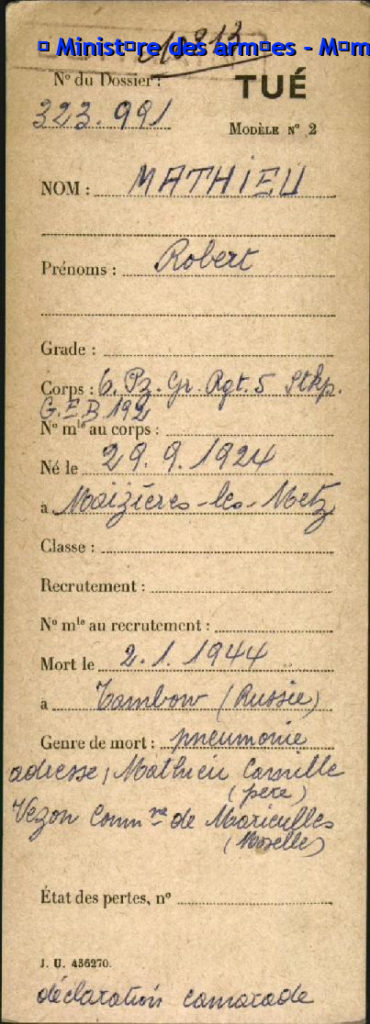 © Ministère des armées - Mém
N° du Dossier :
TUÉ
323.991
MODÈLE N° 2
NOM : MATHIEU
Prénoms : Robert
Grade :
Corps : 6. Pz. Gr. Rgt. 5 Stkp.
G.E.B 192
N° mle au corps :
Né le 29.9.1924
à Maizières-les-Metz
Classe :
Recrutement :
N° mle au recrutement :
Mort le 2.1.1944
à Tambow (Russie)
Genre de mort : pneumonie
adresse, Mathieu Camille
(père)
Vezon Comm ne de Marieulles
(Moselle)
État des pertes, n°
J. U. 436270.
déclaration camarade